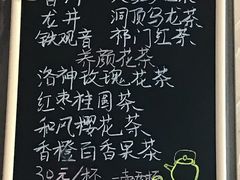 龙井 洞顶乌龙茶
铁观音 祁门红茶
养颜花茶
洛神玫瑰花茶
红枣桂圆茶
和风樱花茶
香橙百香果茶
30元/杯